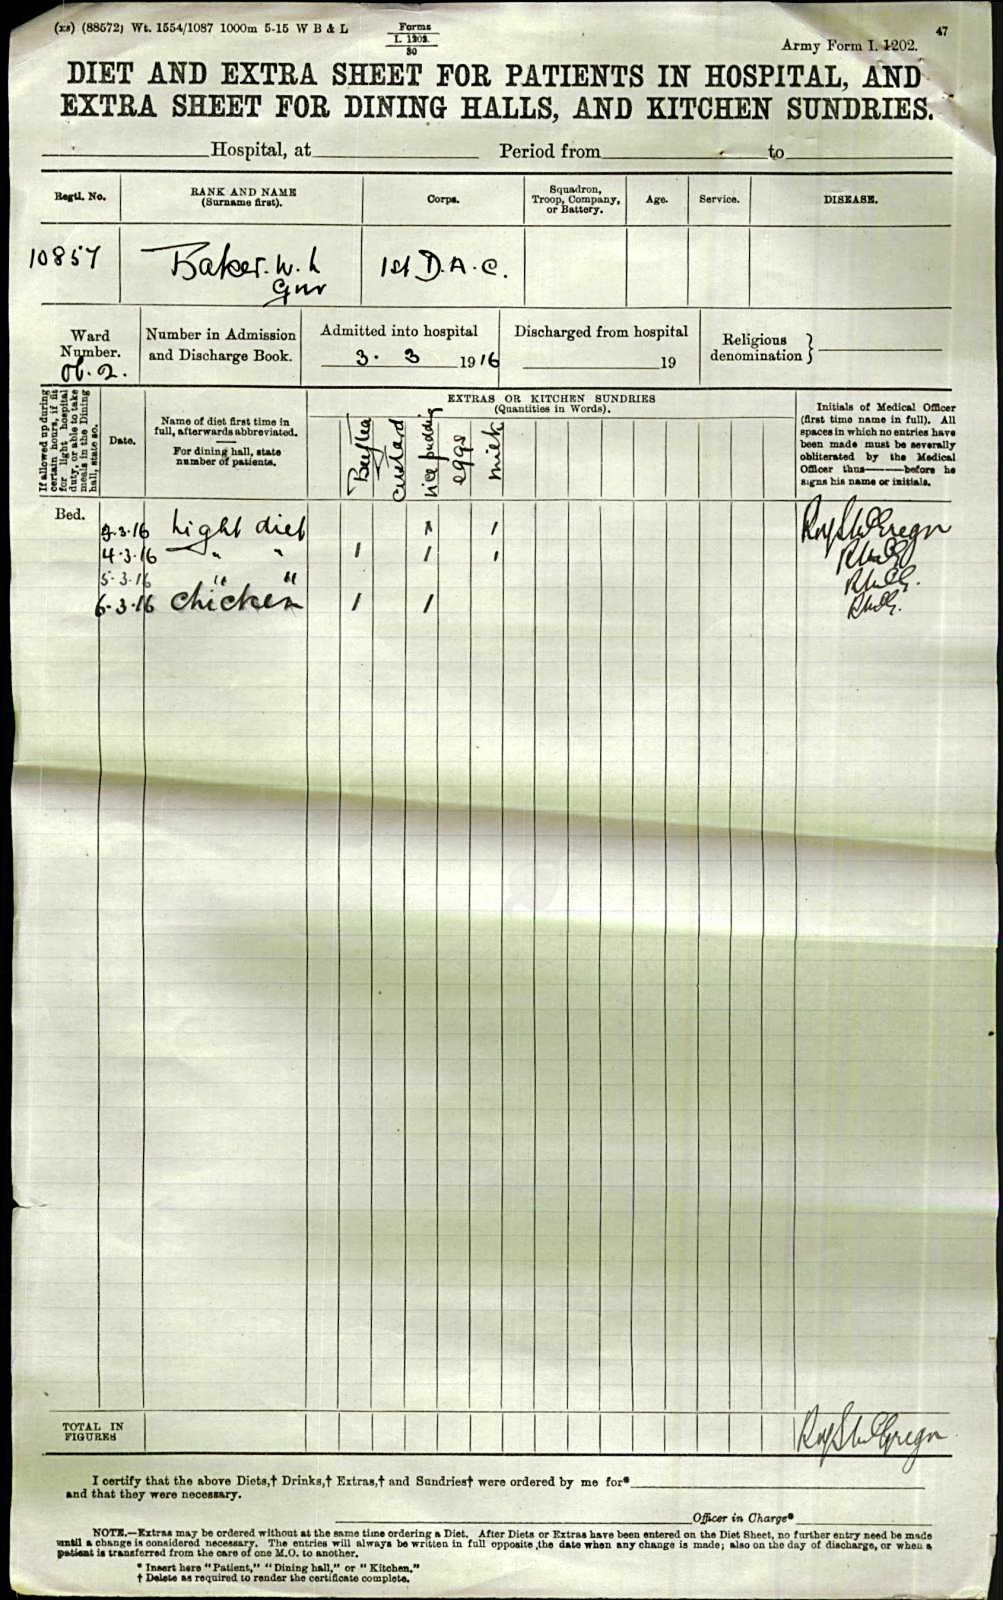 (xs) (88572) Wt. 1554/1087 1000m 5-15 W B & L
Forms
I. 1202.
30
47
Army Form I. 1202.
DIET AND EXTRA SHEET FOR PATIENTS IN HOSPITAL, AND
EXTRA SHEET FOR DINING HALLS, AND KITCHEN SUNDRIES.
Hospital, at Period from to
Regtl. No.
RANK AND NAME
(Surname first).
Corps.
Squadron,
Troop, Company,
or Battery.
Age.
Service.
DISEASE.
10857
Baker. W. L
Gnr
1st D.A.C.
Ward
Number.
Ob. 2.
Number in Admission
and Discharge Book.
Admitted into hospital
3. 3 1916
Discharged from hospital
19
Religious
denomination }
If allowed up during
certain hours, if fit
for light hospital
duty, or able to take
meals in the Dining
hall, state so.
Date.
Name of diet first time in
full, afterwards abbreviated.
For dining hall, state
number of patients.
EXTRAS OR KITCHEN SUNDRIES
(Quantities in Words).
Beef tea
custard
rice pudding
eggs
milk
Initials of Medical Officer
(first time name in full). All
spaces in which no entries have
been made must be severally
obliterated by the Medical
Officer thus———before he
signs his name or initials.
Bed.
3.3.16 Light diet 1 1 Roy S McGregor
4.3.16 " " 1 1 1
5.3.16 " "
6.3.16 Chicken 1 1
TOTAL IN
FIGURES
Roy S McGregor
I certify that the above Diets,† Drinks,† Extras,† and Sundries† were ordered by me for*
and that they were necessary.
Officer in Charge*
NOTE.—Extras may be ordered without at the same time ordering a Diet. After Diets or Extras have been entered on the Diet Sheet, no further entry need be made
until a change is considered necessary. The entries will always be written in full opposite the date when any change is made; also on the day of discharge, or when a
patient is transferred from the care of one M.O. to another.
* Insert here "Patient," "Dining hall," or "Kitchen."
† Delete as required to render the certificate complete.